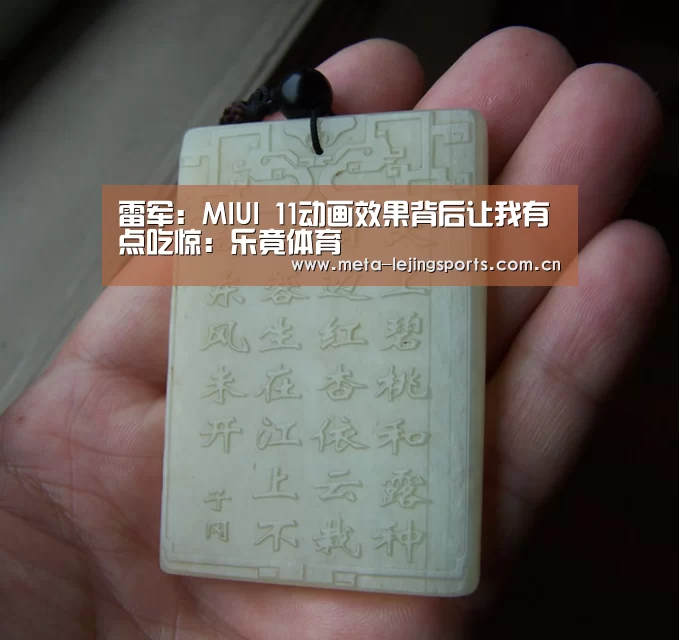 雷军：MIUI 11动画效果背后让我有
点吃惊：乐竟体育
www.meta-lejingsports.com.cn
上碧桃和露种
边红杏依云栽
蓉生在江上不
东风未开
子冈